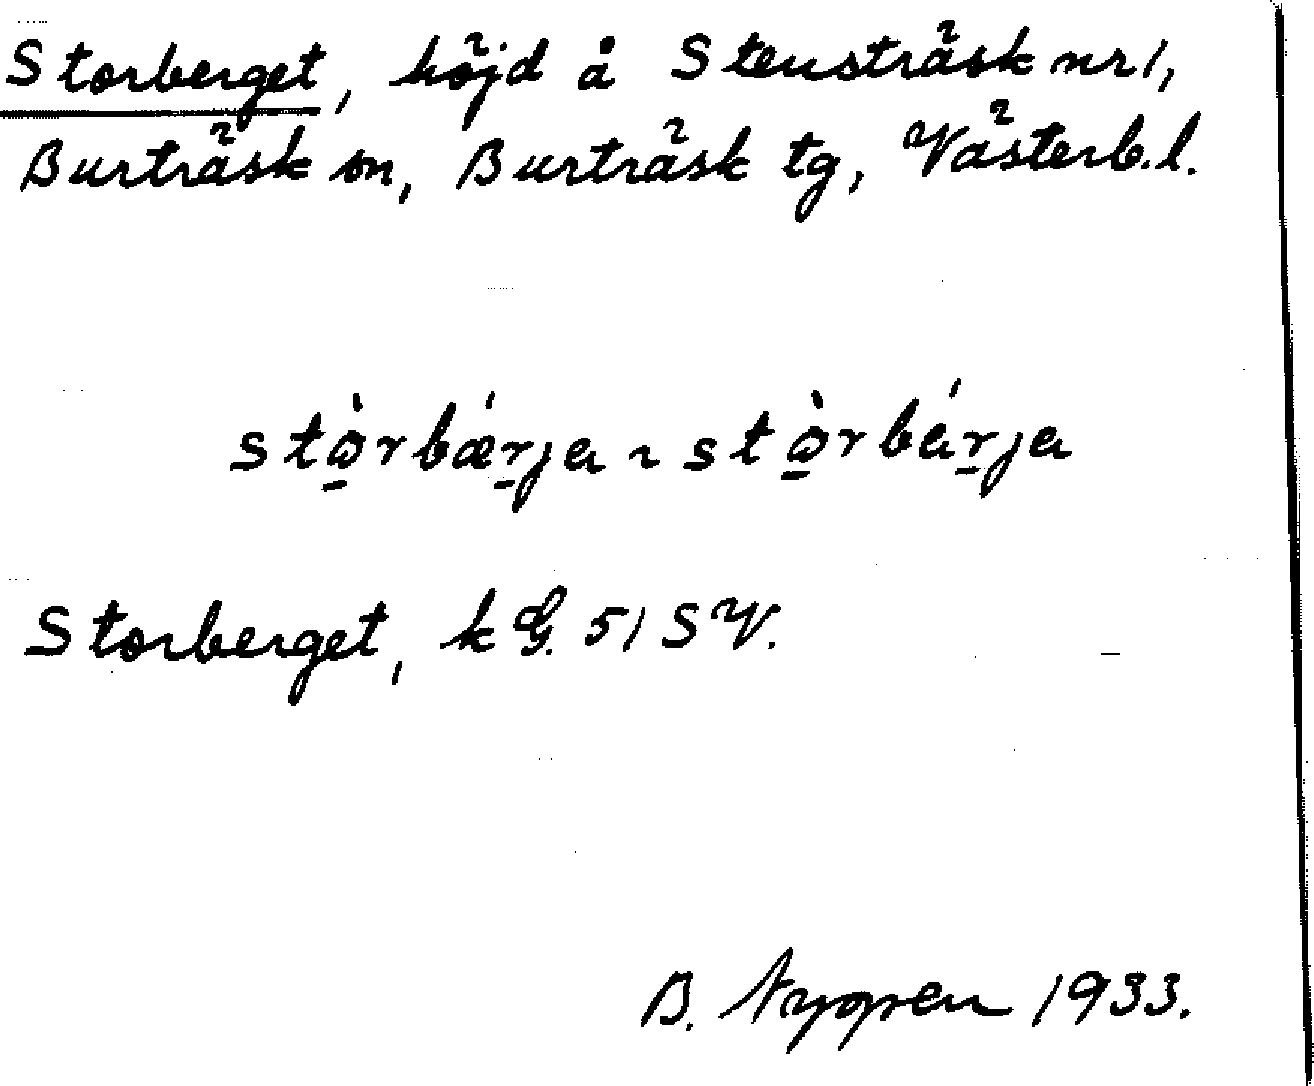 Storberget, höjd å Stensträsk nr 1,
Burträsk sn, Burträsk tg, Västerb.l.
stò̱rbǽr̠ja ~ stò̱rbár̠ja
Storberget, kG. 51 SV.
B. Nygren 1933.